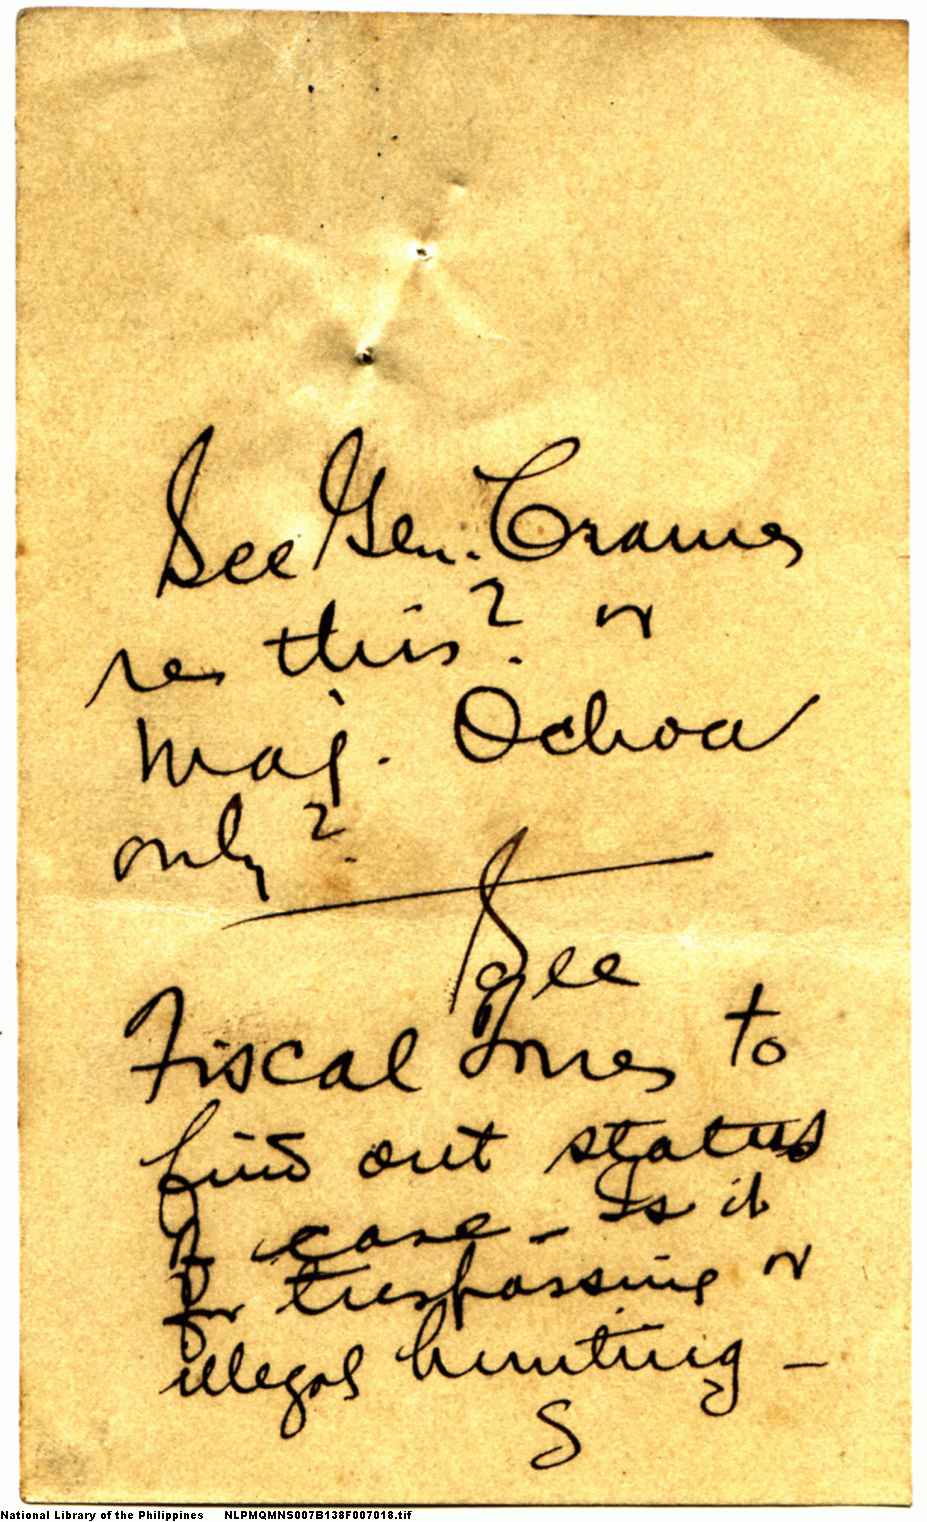 See Gen. Cramer
re this? or
Maj. Ochoa
only?
See
Fiscal to
find out status
of case - Is it
for trespassing or
illegal hunting -
S
National Library of the Philippines NLPMQMNS007B138F007018.tif